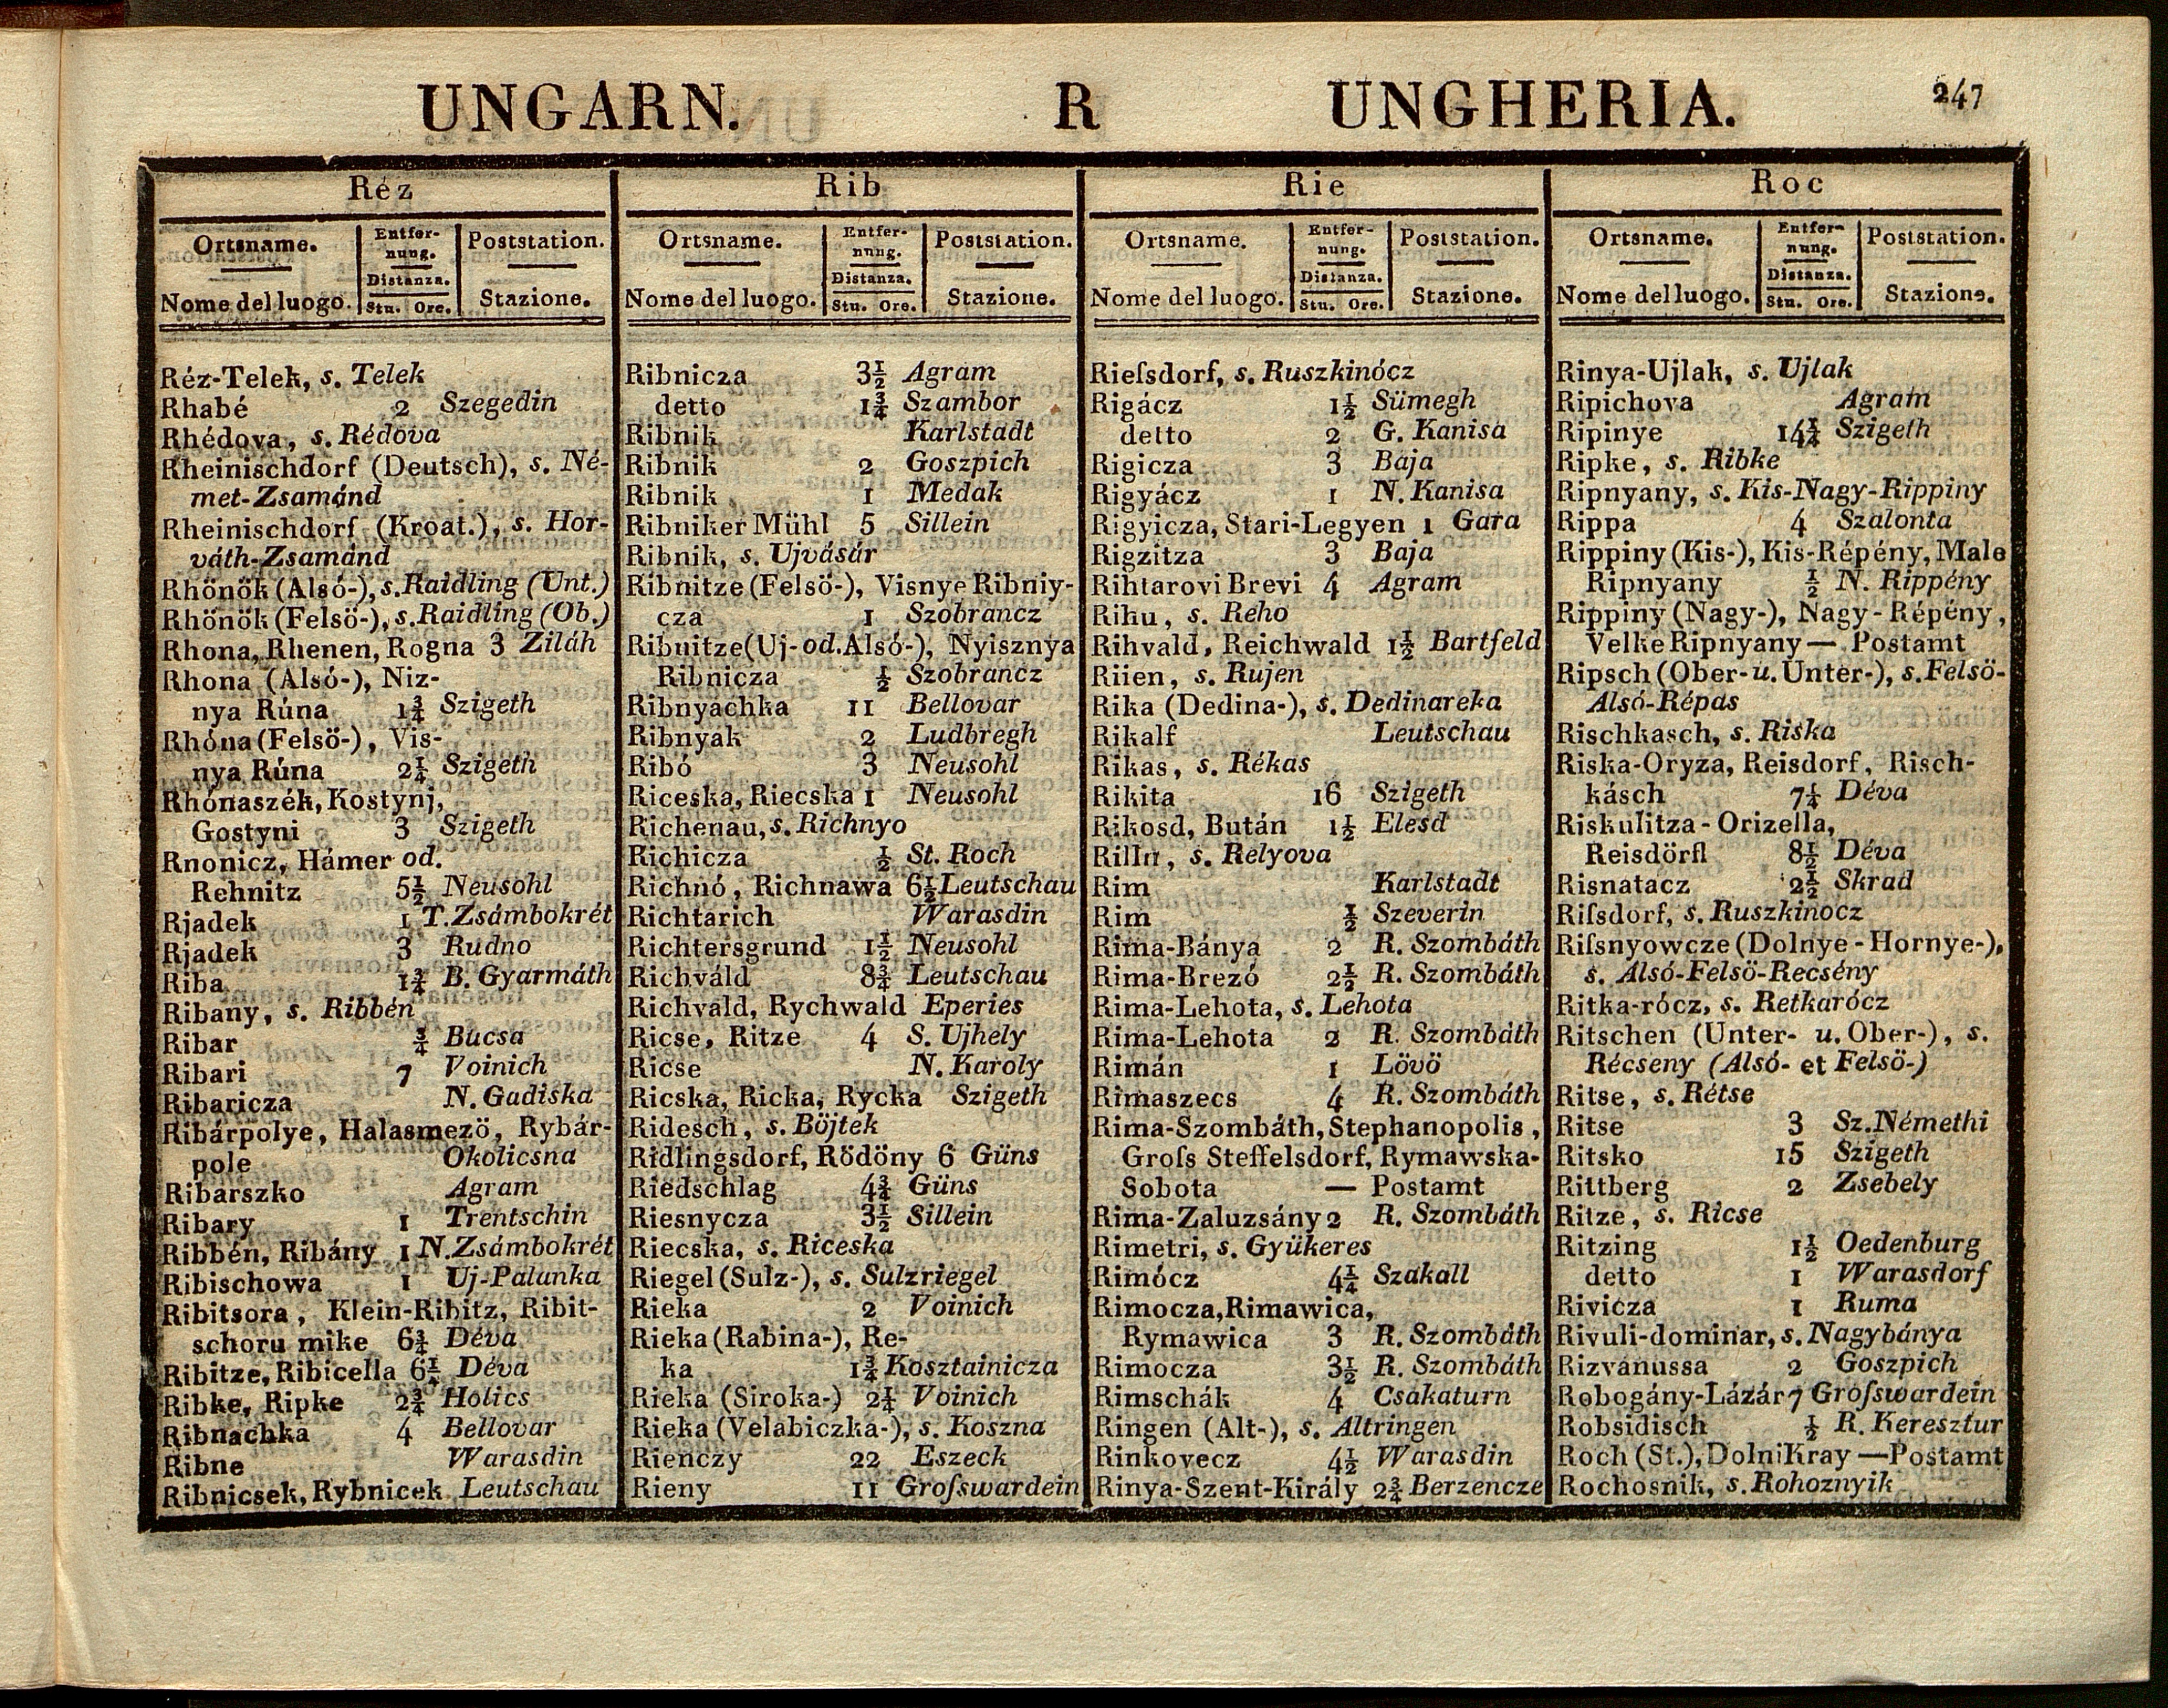 UNGARN. R UNGHERIA. 247
Réz
Ortsname. Entfer- Poststation.
nung.
Distanza.
Nome del luogo. Stu. Ore. Stazione.
Réz-Telek, s. Telek
Rhabé 2 Szegedin
Rhédova, s. Rédova
Rheinischdorf (Deutsch), s. Né-
met-Zsamánd
Rheinischdorf (Kroat.), s. Hor-
váth-Zsamánd
Rhönök (Alsó-), s. Raidling (Unt.)
Rhönök (Felsö-), s. Raidling (Ob.)
Rhona, Rhenen, Rogna 3 Ziláh
Rhona (Alsó-), Niz-
nya Rúna 1¾ Szigeth
Rhóna (Felsö-), Vis-
nya Rúna 2¼ Szigeth
Rhónaszék, Kostynj,
Gostyni 3 Szigeth
Rnonicz, Hámer od.
Rehnitz 5½ Neusohl
Rjadek 1 T. Zsámbokrét
Rjadek 3 Rudno
Riba 1¾ B. Gyarmáth
Ribany, s. Ribbén
Ribar ¾ Bucsa
Ribari 7 Voinich
Ribaricza N. Gadiska
Ribárpolye, Halasmezö, Rybár-
pole Okolicsna
Ribarszko Agram
Ribary 1 Trentschin
Ribbén, Ribány 1 N. Zsámbokrét
Ribischowa 1 Uj-Palanka
Ribitsora, Klein-Ribitz, Ribit-
schoru mike 6¾ Déva
Ribitze, Ribicella 6¼ Déva
Ribke, Ripke 2¾ Holics
Ribnachka 4 Bellovar
Ribne Warasdin
Ribnicsek, Rybnicek Leutschau
Rib
Ortsname. Entfer- Poststation.
nnng.
Distanza.
Nome del luogo. Stu. Ore. Stazione.
Ribnicza 3½ Agram
detto 1¾ Szambor
Ribnik Karlstadt
Ribnik 2 Goszpich
Ribnik 1 Medak
Ribniker Mühl 5 Sillein
Ribnik, s. Ujvásár
Ribnitze (Felsö-), Visnye Ribniy-
cza 1 Szobrancz
Ribnitze (Uj- od. Alsó-), Nyisznya
Ribnicza ½ Szobrancz
Ribnyachka 11 Bellovar
Ribnyak 2 Ludbregh
Ribó 3 Neusohl
Riceska, Riecska 1 Neusohl
Richenau, s. Richnyo
Richicza ½ St. Roch
Richnó, Richnawa 6½ Leutschau
Richtarich Warasdin
Richtersgrund 1½ Neusohl
Richváld 8¾ Leutschau
Richvald, Rychwald Eperies
Ricse, Ritze 4 S. Ujhely
Ricse N. Karoly
Ricska, Ricka, Rycka Szigeth
Ridesch, s. Böjtek
Ridlingsdorf, Rödöny 6 Güns
Riedschlag 4¾ Güns
Riesnycza 3½ Sillein
Riecska, s. Riceska
Riegel (Sulz-), s. Sulzriegel
Rieka 2 Voinich
Rieka (Rabina-), Re-
ka 1¾ Kosztainicza
Rieka (Siroka-) 2¼ Voinich
Rieka (Velabiczka-), s. Koszna
Rienczy 22 Eszeck
Rieny 11 Groſswardein
Rie
Ortsname. Entfer- Poststation.
nung.
Distanza.
Nome del luogo. Stu. Ore. Stazione.
Rieſsdorf, s. Ruszkinócz
Rigácz 1½ Sümegh
detto 2 G. Kanisa
Rigicza 3 Baja
Rigyácz 1 N. Kanisa
Rigyicza, Stari-Legyen 1 Gara
Rigzitza 3 Baja
Rihtarovi Brevi 4 Agram
Rihu, s. Reho
Rihvald, Reichwald 1½ Bartfeld
Riien, s. Rujen
Rika (Dedina-), s. Dedinareka
Rikalf Leutschau
Rikas, s. Rékas
Rikita 16 Szigeth
Rikosd, Bután 1½ Elesd
Rillu, s. Relyova
Rim Karlstadt
Rim ½ Szeverin
Rima-Bánya 2 R. Szombáth
Rima-Brezó 2½ R. Szombáth
Rima-Lehota, s. Lehota
Rima-Lehota 2 R. Szombáth
Rimán 1 Lövö
Rimaszecs 4 R. Szombáth
Rima-Szombáth, Stephanopolis,
Groſs Steffelsdorf, Rymawska-
Sobota — Postamt
Rima-Zaluzsány 2 R. Szombáth
Rimetri, s. Gyükeres
Rimócz 4¼ Szakall
Rimocza, Rimawica,
Rymawica 3 R. Szombáth
Rimocza 3½ R. Szombáth
Rimschák 4 Csakaturn
Ringen (Alt-), s. Altringen
Rinkovecz 4½ Warasdin
Rinya-Szent-Király 2¾ Berzencze
Roc
Ortsname. Entfer- Poststation.
nung.
Distanza.
Nome del luogo. Stu. Ore. Stazione.
Rinya-Ujlak, s. Ujlak
Ripichova Agram
Ripinye 14¼ Szigeth
Ripke, s. Ribke
Ripnyany, s. Kis-Nagy-Rippiny
Rippa 4 Szalonta
Rippiny (Kis-), Kis-Répény, Male
Ripnyany ½ N. Rippény
Rippiny (Nagy-), Nagy-Répény,
Velke Ripnyany — Postamt
Ripsch (Ober- u. Unter-), s. Felsö-
Alsó-Répas
Rischkasch, s. Riska
Riska-Oryza, Reisdorf, Risch-
kásch 7¼ Déva
Riskulitza-Orizella,
Reisdörfl 8½ Déva
Risnatacz 2½ Skrad
Riſsdorf, s. Ruszkinocz
Riſsnyowcze (Dolnye-Hornye-),
s. Alsó-Felsö-Recsény
Ritka-rócz, s. Retkarócz
Ritschen (Unter- u. Ober-), s.
Récseny (Alsó- et Felsö-)
Ritse, s. Rétse
Ritse 3 Sz. Némethi
Ritsko 15 Szigeth
Rittberg 2 Zsebely
Ritze, s. Ricse
Ritzing 1½ Oedenburg
detto 1 Warasdorf
Rivicza 1 Ruma
Rivuli-dominar, s. Nagybánya
Rizvanussa 2 Goszpich
Robogány-Lázár 7 Groſswardein
Robsidisch ½ R. Keresztur
Roch (St.), Dolni Kray — Postamt
Rochosnik, s. Rohoznyik